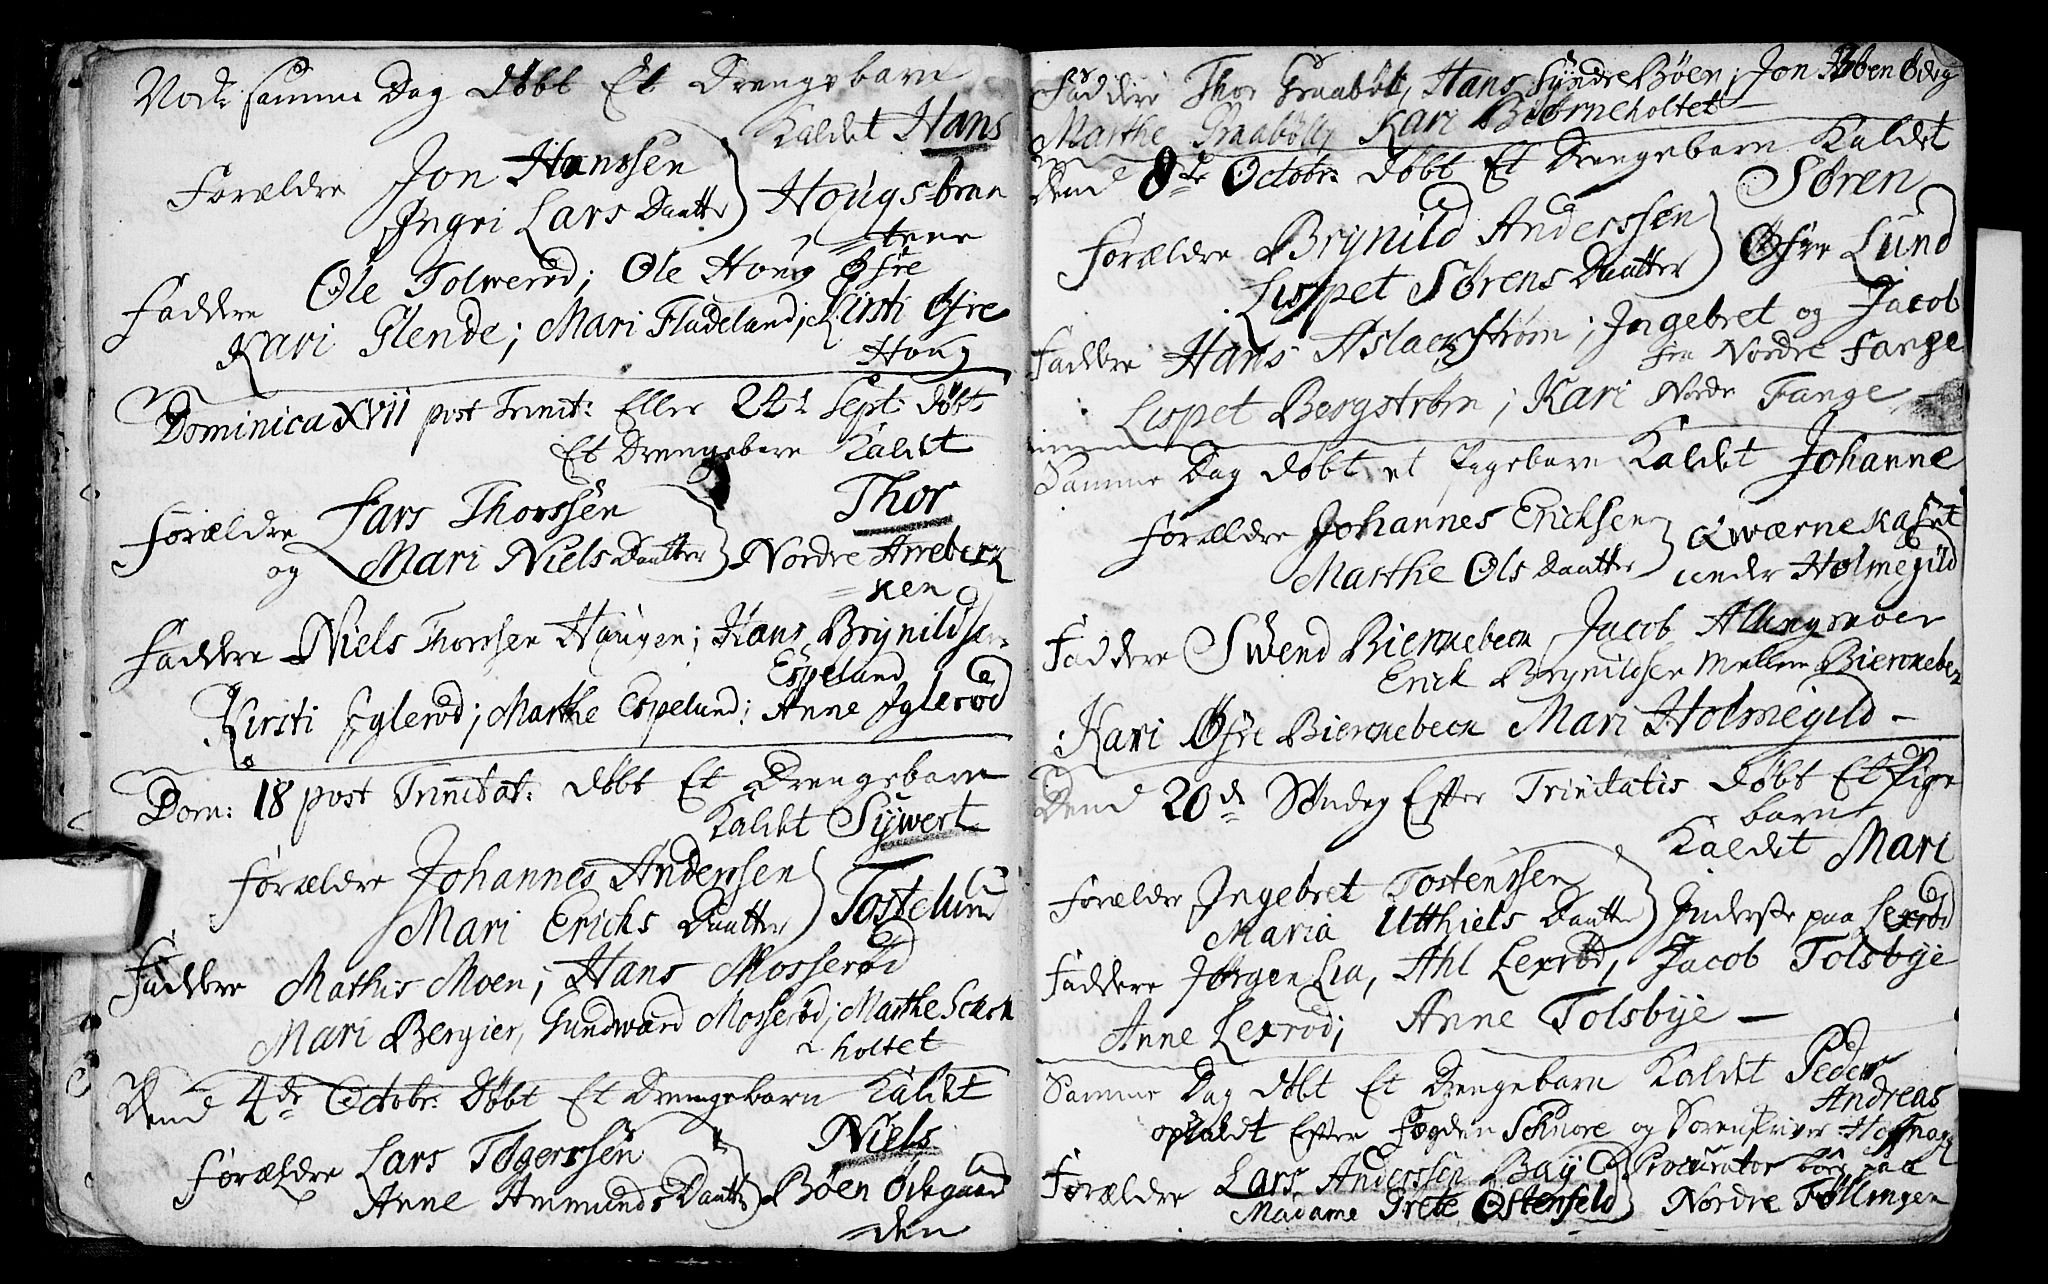 samme Dag døbt Et Drengebarn
Kaldet Hans
Forældre Jon Hanssen
Ingri Lars Daatter Hougs-braa
tene
Faddere Ole Tolwerød; Ole Houg Øfre
Kari Glende; Mari Fladeland; Kirsti Øfre
Houg
Dominica XVII post Trinit: Eller 24de Sept: døbt
Et Drengebarn Kaldet
Thor
Forældre Lars Thorssen
og Mari Niels Daatter Nordre Arreberk
ken
Faddere Niels Thorssen Haugen; Hans Brynildsen
Espeland
Kirsti Iglerød; Marthe Espeland; Anne Iglerød
Dom: 18 post Trinitat: døbt Et Drengebarn
Kaldet Sywert
Forældre Johannes Anderssen
Mari Erichs Daatter Tostelund
Faddere Mathis Moen; Hans Mosserød
Mari Bergier, Gundward Mosserød; Marthe Schak
holtet
Dend 4de Octobr: Døbt Et Drengebarn Kaldet
Niels
Forældre Lars Togerssen
Anne Ammunds Daatter Bøen Ødegaar
den
Faddere Thor Graabøl, Hans Syndre Bøen; Jon Ødeg
Marthe Graabøll; Kari Biørneholtet
Dend 8de Octobr: døbt Et Drengebarn Kaldet
Søren
Forældre Brynild Anderssen
Lispet Sørens Daatter Øfre Lund
Faddere Hans Aslackstrøm; Ingebret og Jacob
fra Nordre Fange
Lispet Bergstrøm; Kari Nordre Fange
Samme Dag døbt et Pigebarn Kaldet Johanne
Forældre Johannes Ericksen Qwærnekaset
Marthe Ols Daatter under Holmegild
Faddere Swend Bierkebeck Jacob Allingmoen
Erick Brynildsen Mellem Bierkebek
Kari Øfre Bierkebeck Mari Holmegild
Dend 20de Søndag Efter Trinitatis døbt Et Pige
barn
Kaldet Mari
Forældre Ingebret Tostenssen
Maria Utthiels Daatter Inderste paa Lexrød
Faddere Jørgen Lia, Ahl Lexrød, Jacob Tolsbye
Anne Lexrød; Anne Tolsbye
Samme Dag døbt Et Drengebarn Kaldet Peder
Andreas
opkaldt Efter Fogden Schnore og Sorenskriver
Forældre Lars Anderssen Bay Procurator boe paa
Madame Grete Østenfeld Nordre Føllingen